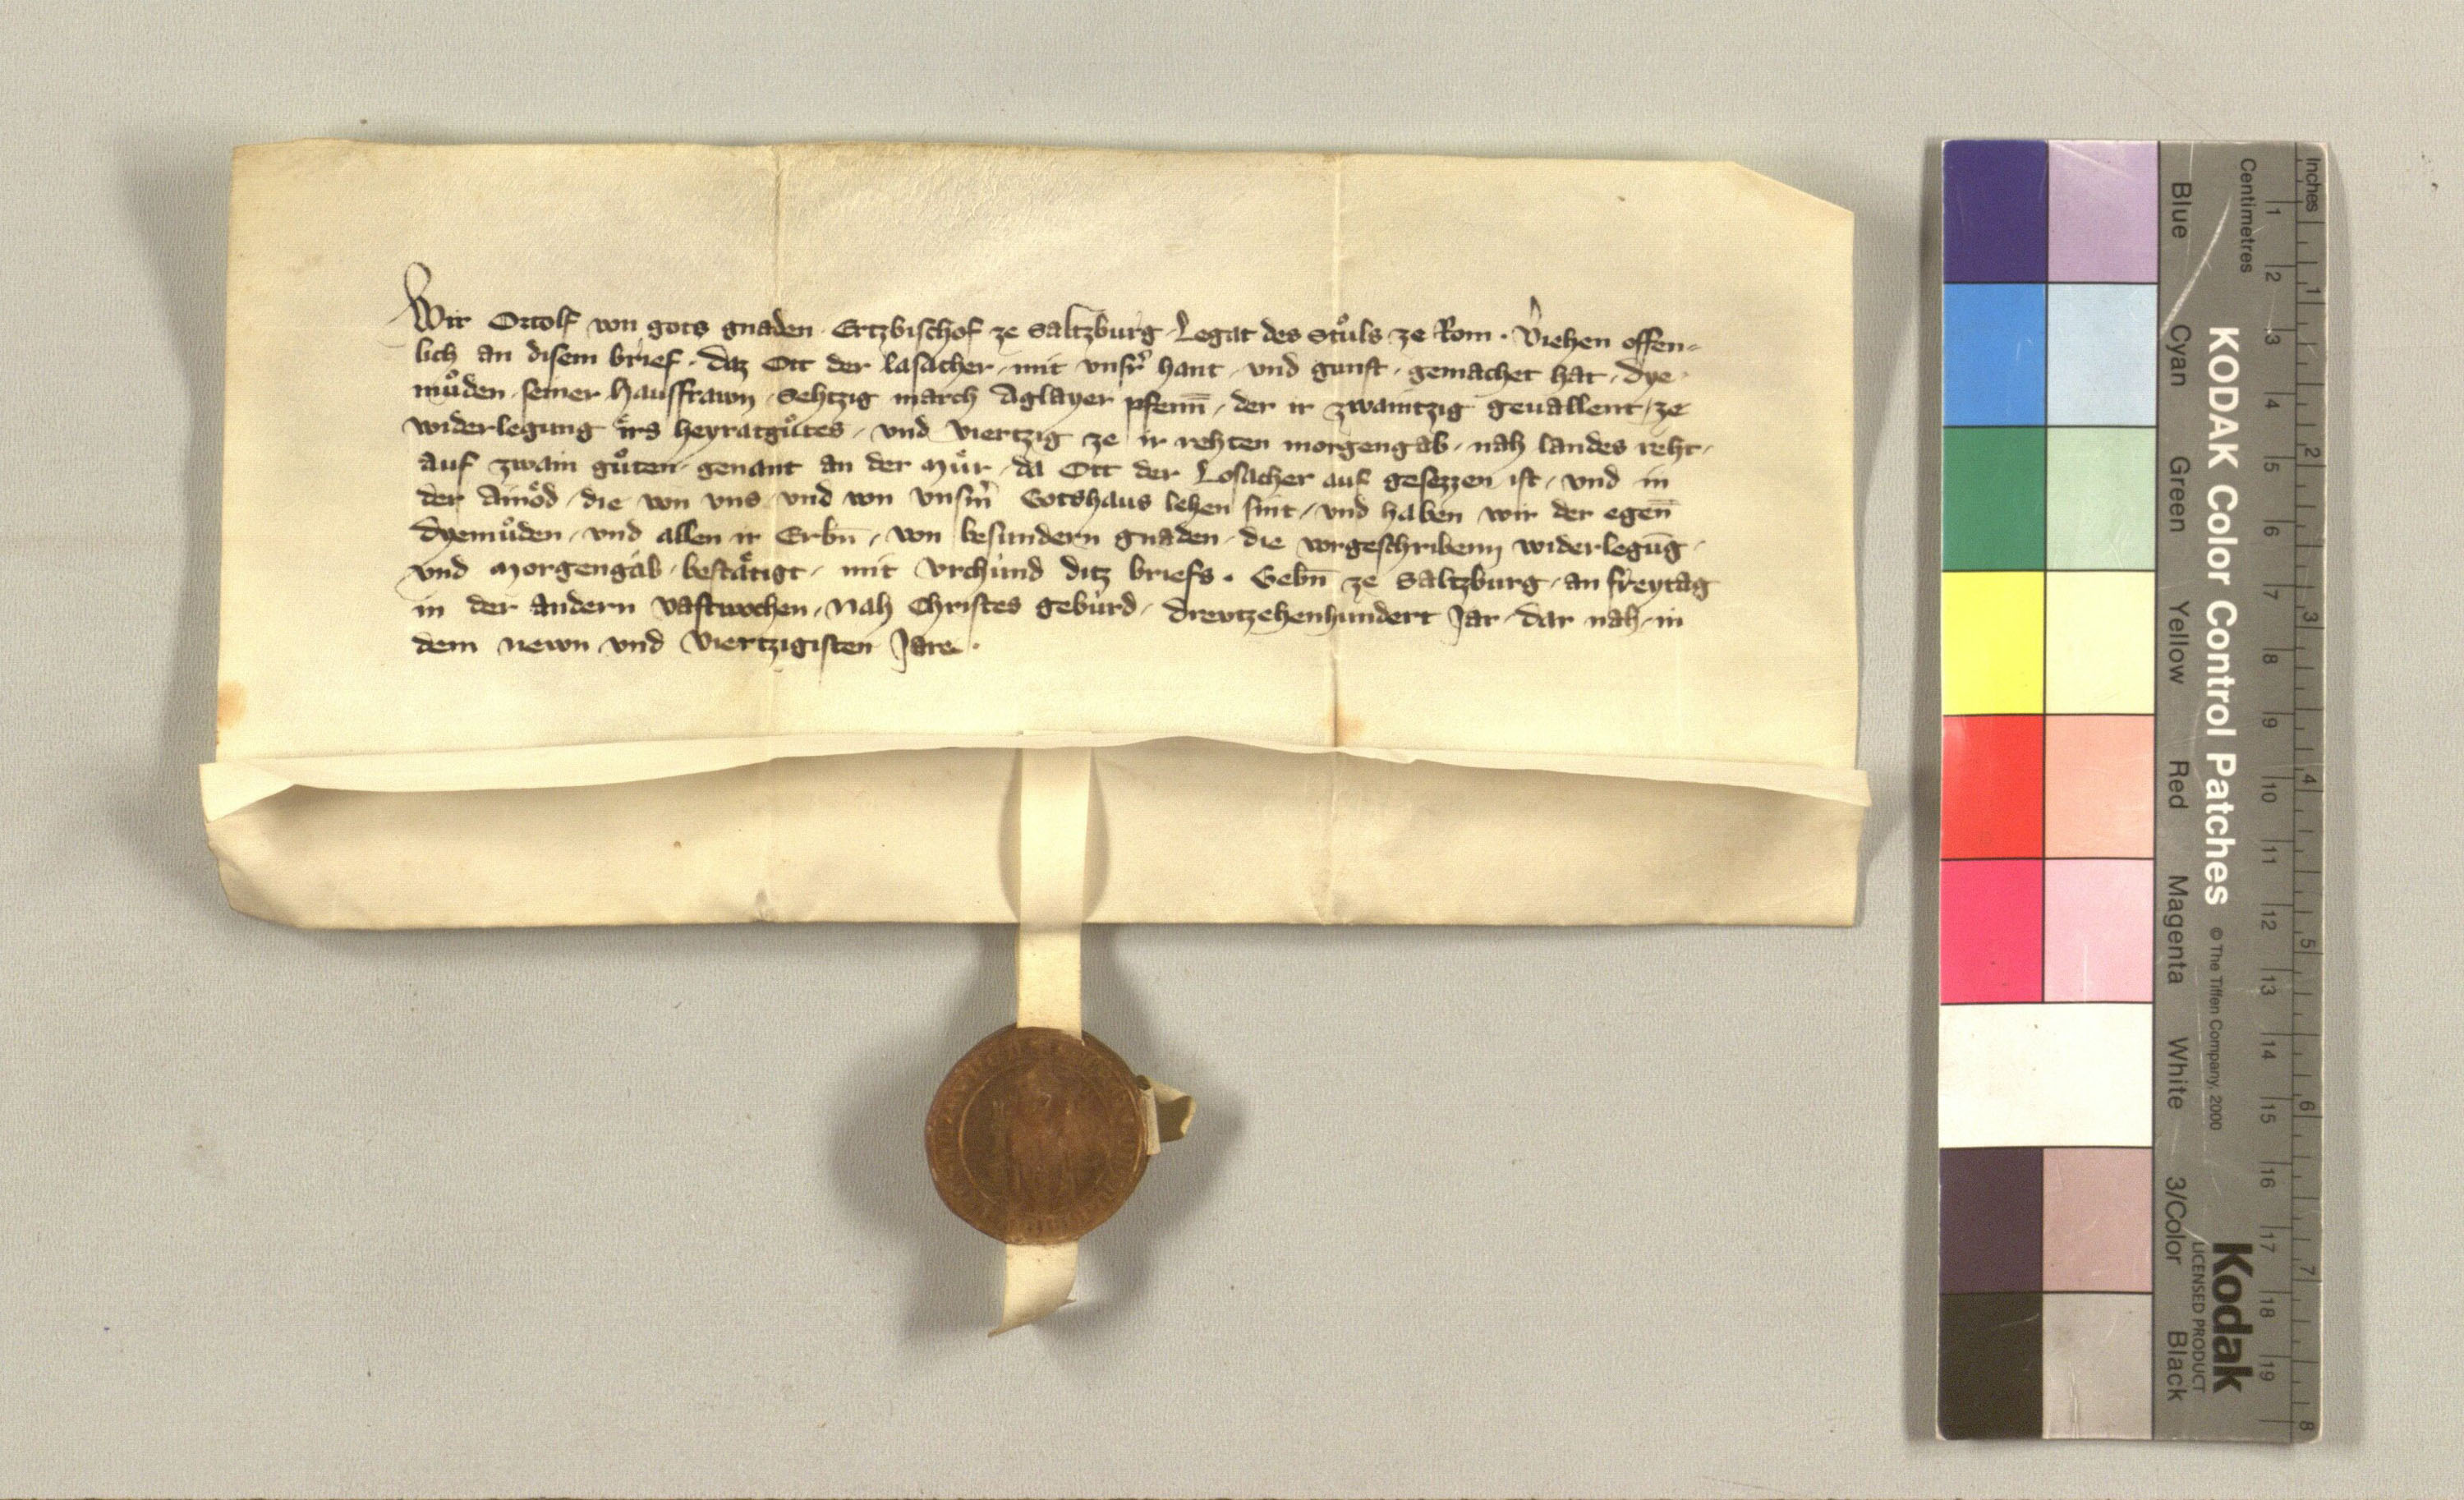 Wir Ortolf von gots gnaden Ertzbischof ze Saltzburg Legat des Stuͦls ze Rom · Ṽiehen offen-
lich an disem brief · daz Ott der lasacher mit vnsr̃ hant vnd gunst gemachet hat Dye
muͦden seiner hausfrawn Sehtzig march Aglayer pfenn̄ der ir zwaintzig geuallent ze
widerlegung irs heyratguͦtes vnd viertzig ze ir rehten morgengab nah landes reht
auf zwain guͦten genant an der Muͦr da Ott der Losacher auf gesezzen ist vnd in
der Ainoͤd die von vns vnd von vnsm̃ Gotshaus lehen sint vnd haben wir der egen̄
Dyemuͦden vnd allen ir Erbn̄ von besundern gnaden die vorgeschribenn widerlegūg
vnd Morgengab bestaͤtigt mit vrchund ditz briefs · Gebn̄ ze Saltzburg an freytag
in der andern vastwochen Nah Christes gebuͤrd Drevtzehenhundert Jar dar nah in
dem newn vnd viertzigisten Jare ·
Inches
Centimetres
1 2 3 4 5 6 7 8
1 2 3 4 5 6 7 8 9 10 11 12 13 14 15 16 17 18 19
KODAK Color Control Patches © The Tiffen Company, 2000 Kodak
LICENSED PRODUCT
Blue Cyan Green Yellow Red Magenta White 3/Color Black